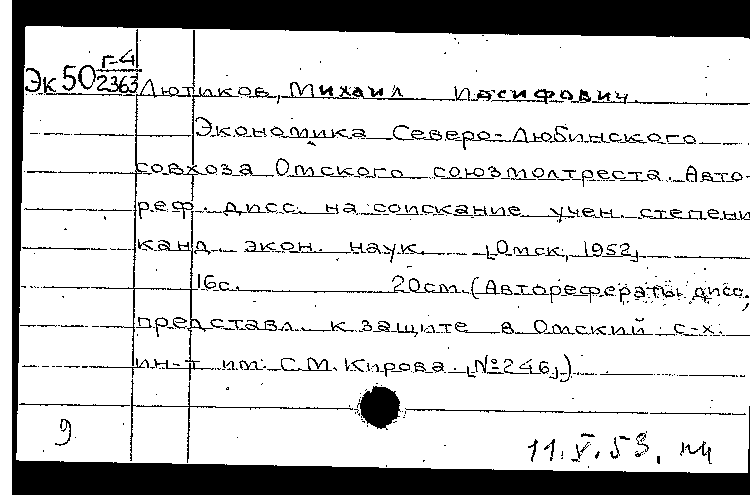 Г-4
Эк 50 2363 Лютиков, Михаил Иосифович.
Экономика Северо-Любинского
совхоза Омского союзмолтреста. Авто-
реф. дисс. на соискание учен. степени
канд. экон. наук. [Омск, 1952]
16с. 20см. (Авторефераты дисс.,
представл. к защите в Омский с-х.
ин-т им. С.М. Кирова. [№246])
9
11.V.53.